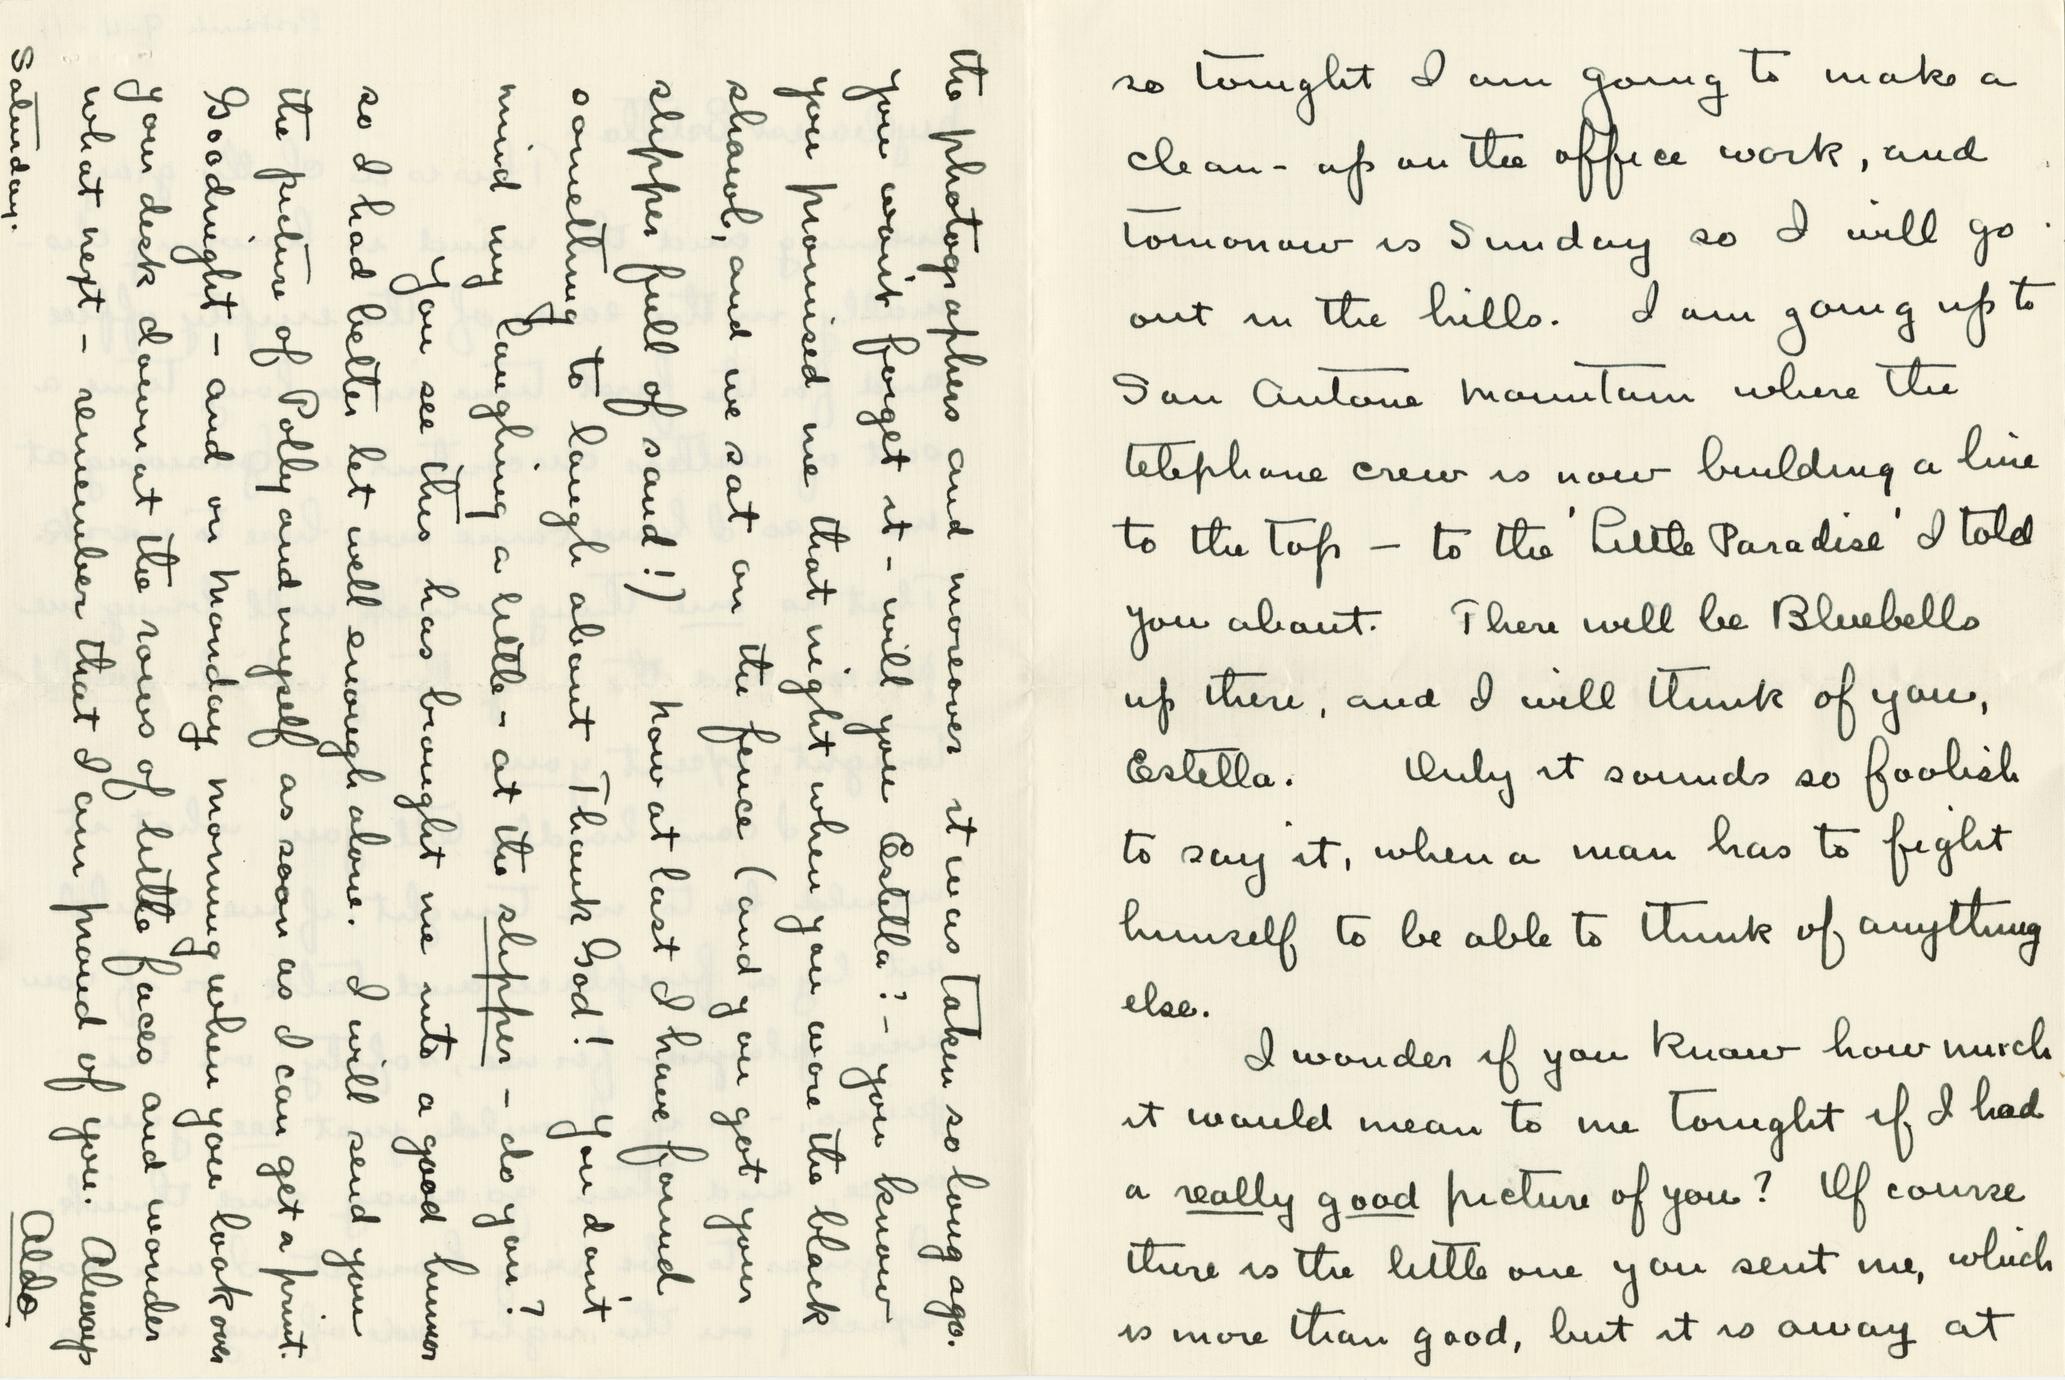 so tonight I am going to make a
clean-up on the office work, and
tomorrow is Sunday so I will go
out in the hills. I am going up to
San Antone Mountain where the
telephone crew is now building a line
to the top — to the 'Little Paradise' I told
you about. There will be Bluebells
up there, and I will think of you,
Estella. Only it sounds so foolish
to say it, when a man has to fight
himself to be able to think of anything
else.
I wonder if you know how much
it would mean to me tonight if I had
a really good picture of you? Of course
there is the little one you sent me, which
is more than good, but it is away at
the photographers and moreover it was taken so long ago.
you won't forget it - will you Estella? - you know
you promised me that night when you wore the black
shawl, and we sat on the fence (and you got your
slipper full of sand!) Now at last I have found
something to laugh about Thank God! You don't
mind my laughing a little - at the slipper - do you?
You see this has brought me into a good humor
so I had better let well enough alone. I will send you
the picture of Polly and myself as soon as I can get a print.
Goodnight - and on Monday morning when you look over
your desk down at the rows of little faces and wonder
what next - remember that I am proud of you. Always
Aldo
Saturday.